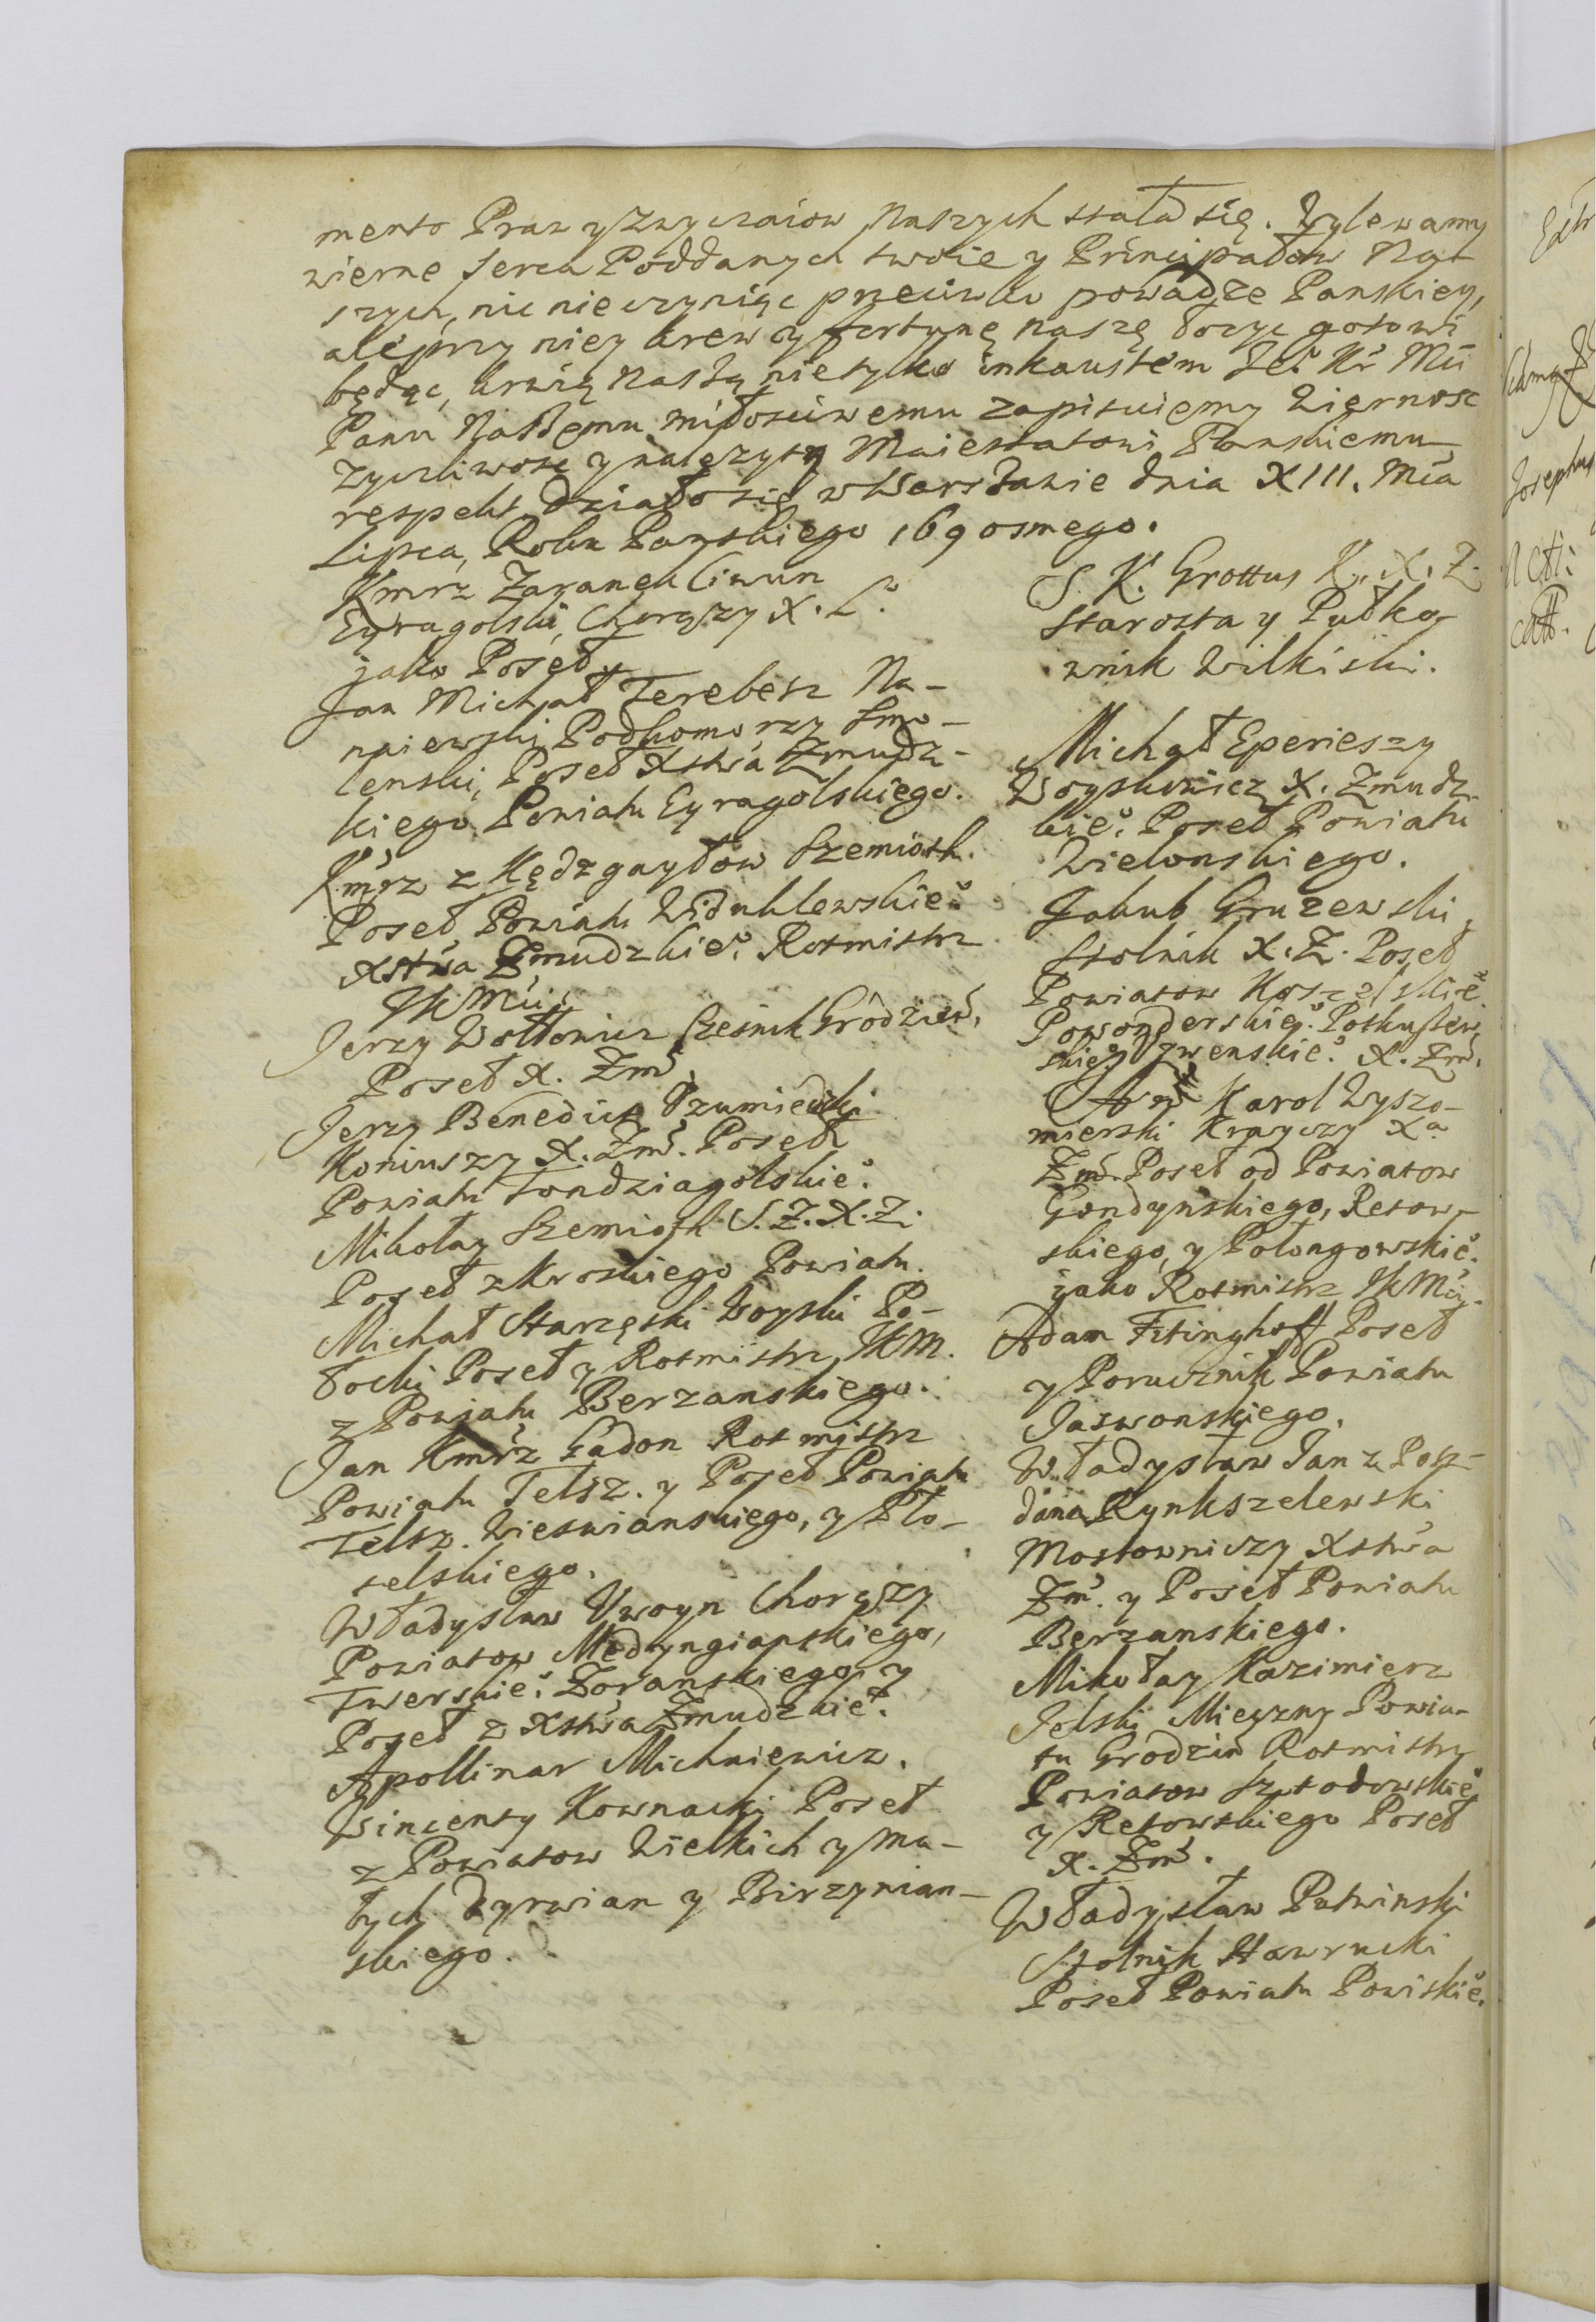 mento Praw y Zwyczaiow Naszych stała się. Wylewamy
wierne serca Poddanych swoie y Principałow Na-
szych, nic nieczyniąc przeciwko powadze Panskiey,
ale przy niey krew y fortunę naszę łozyc gotowi
będąc, krwią naszą nietylko inkaustem Je͠º Kr͠ Mci
Panu Naszemu miłosciwemu zapisuiemy Wiernosc
Zyczliwosc y nalezyty Maiestatowi Panskiemu
respekt. Działo się w Warszawie dnia XIII. Mca
Lipca, Roku Panskiego 169 osmego.
Kmrz Zaranek Ciwun
Eyragolski, Chorązy X. L.
jako Poseł
Jan Michał Terebesz Na-
niewski, Podkomorzy Smo-
lenski, Poseł Xstwa Zmudz-
kiego Powiatu Eyragolskiego.
Kmrz z Kędzgayłow Szemioth.
Poseł Powiatu Widuklewskieº
Xstwa Zmudzkieº Rotmistrz
JKMci
Jerzy Wołłowicz Czesnik Grodzień.
Poseł X. Zm͠.
Jerzy Benedict Szumiecki
Koniuszy X. Zm͠. Poseł
Powiatu Tondziagolskieº
Mikołay Szemioth S. Z. X. Z.
Poseł z Kroskiego Powiatu.
Michał Starzęski Woyski Po-
łocki Poseł y Rotmistrz JKM.
z Powiatu Berzanskiego.
Jan Kmrz Gadon Rotmistrz
Powiatu Telsz. y Poseł Powiatu
Telsz. Wieswianskiego, y Pło-
telskiego.
Władysław Uwoyn Chorązy
Powiatow Medyngianskiego,
Twerskieº Zoranskiego, y
Poseł z Xstwa Zmudzkieº
Apollinar Michniewicz.
Wincenty Kownacki Poseł
z Powiatow Wielkich y Ma-
łych Dyrwian y Birzynian-
skiego.
S. K. Grottus K. X. Z.
Starosta y Pułko-
wnik Wilkiski.
Michał Eperieszy
Woyskowicz X. Zmudz
kieº Poseł Powiatu
Wielonskiego.
Jakub Gruzewski,
Stolnik X. Z. Poseł
Powiatow Korszewskieº
Powonderskieº Potkuszew
skieº Uzwenskieº X. Zm͠.
Karol Wyszo-
mierski Krayczy Xa
Zm͠. Poseł od Powiatow
Gondynskiego, Retow-
skiego, y Połongowskieº
jako Rotmistrz JKMci.
Adam Fitinghoff Poseł
y Porucznik Powiatu
Jaswonskiego.
Władysław Jan z Posz-
dana Rynkszelewski
Mostowniczy Xstwa
Zm͠. y Poseł Powiatu
Berzanskiego.
Mikołay Kazimierz
Jelski Mieczny Powia-
tu Grodziń Rotmistrz
Powiatow Szydowskieº
y Retowskiego Poseł
X. Zm͠.
Władysław Putwinski
Stolnik Starucki
Poseł Powiatu Powiskieº
Josephus